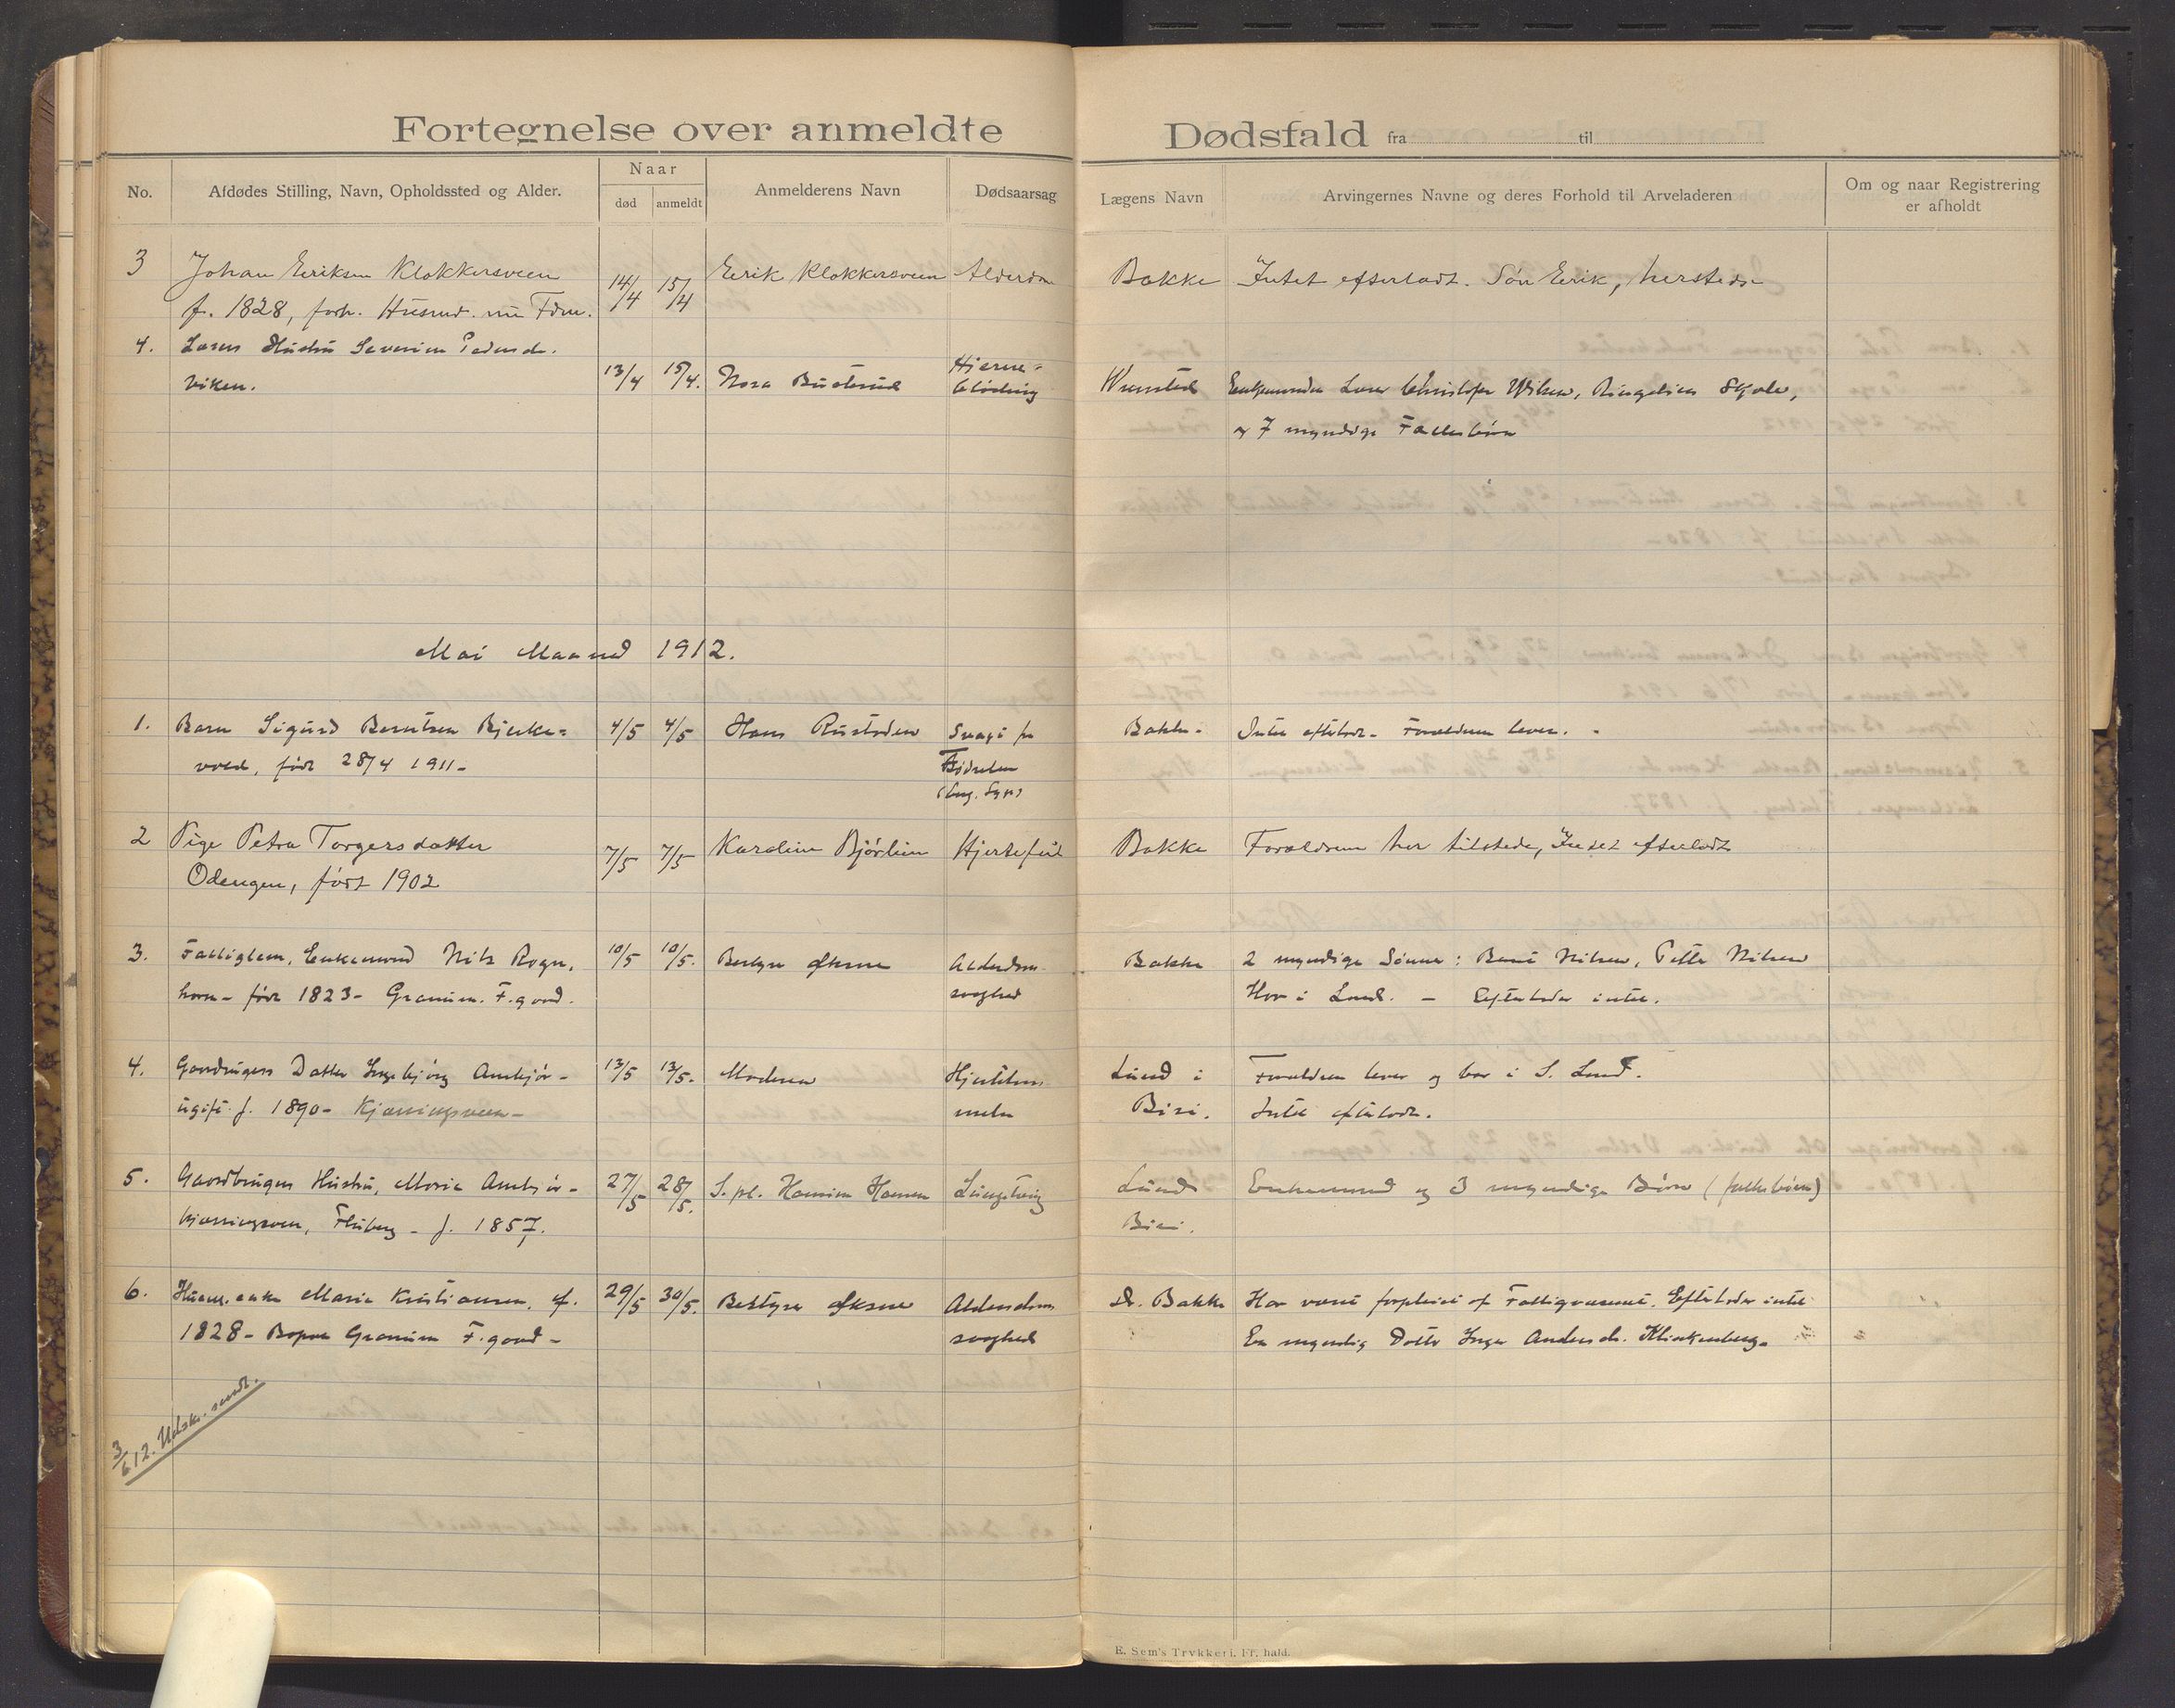 Fortegnelse over anmeldte Dødsfald fra til
No. Afdødes Stilling, Navn, Opholdssted og Alder. Naar død anmeldt Anmelderens Navn Dødsaarsag Lægens Navn Arvingernes Navne og deres Forhold til Arveladeren Om og naar Registrering er afholdt
3 Johan Eriksen Klokkersveen 14/4 15/4 Erik Klokkersveen Alderdom Bakke Intet efterladt. Søn Erik, hersteds
f. 1828, forh. Husmd. nu Fdm.
4. Severine Pedersd. 13/4 15/4. Nora Hjerne-
Viken. blødning Enkemanden Christofer Skole,
og 7 myndige Fællesbørn
Mai Maaned 1912.
1. Barn Sigurd Berntsen Bjerke= 4/5 4/5 Hans Rustadeen Svag fra Bakke. Intet efterladt. Forældrene lever.
vold, født 28/4 1911- Fødselen
2 Pige Petra Torgersdatter 7/5 7/5 Karoline Bjørlien Hjertefeil Bakke Forældrene her tilstede, Intet efterladt
Odengen, født 1902
3. Fattiglem, Enkemand Nils Rogn, 10/5 10/5. Bestyrer Alderdoms Bakke 2 myndige Sønner: Bernt Nilsen, Petter Nilsen
født 1823- Granum. F.gaard. svaghed Hov i Land. - Efterlader intet.
4. Datter Ingebjørg 13/5 13/5. Moderen Lund i Forældrene lever og bor i S. Land.
ugift. f. 1890- Kjæssingsveen- Biri. Intet efterladt.
5. Gaardbrugers Hustru, Marie 27/5 28/5. S.pl. Hansen Lund Enkemand og 3 myndige Børn (fællesbørn)
Kjæssingsveen, Fluberg - f. 1857. Biri.
6. Husm. enke Marie Kristiansen. f. 29/5 30/5. Bestyrer Alderdoms Dr. Bakke Har været forpleiet af Fattigvæsenet. Efterlader intet
1828- Bopæl Granum F.gaard- svaghed En myndig Datter Inger Andersd. Klinkenberg.
3/6 12. Udskr. sendt.
E. Sem's Trykkeri. Fr. hald.